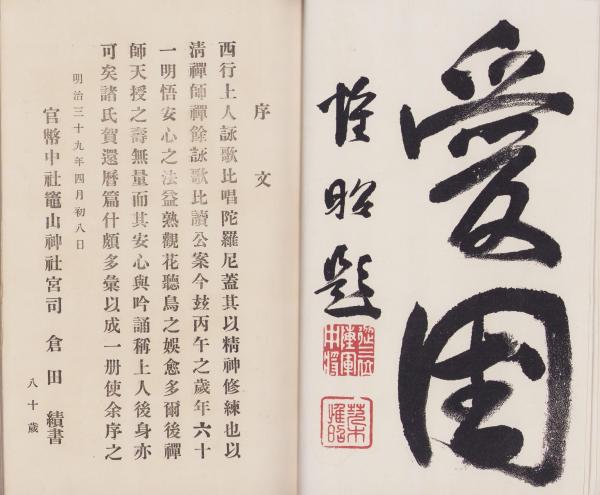 愛國
惟昭題
從三位陸軍中將
茨木惟昭
序文
西行上人詠歌比唱陀羅尼蓋其以精神修練也以
淸禪師禪餘詠歌比讀公案今玆丙午之歲年六十
一明悟安心之法益熟觀花聽鳥之娛愈多爾後禪
師天授之壽無量而其安心與吟誦稱上人後身亦
可矣諸氏賀還曆篇什頗多彙以成一册使余序之
明治三十九年四月初八日
官幣中社竈山神社宮司 倉田績書
八十歲